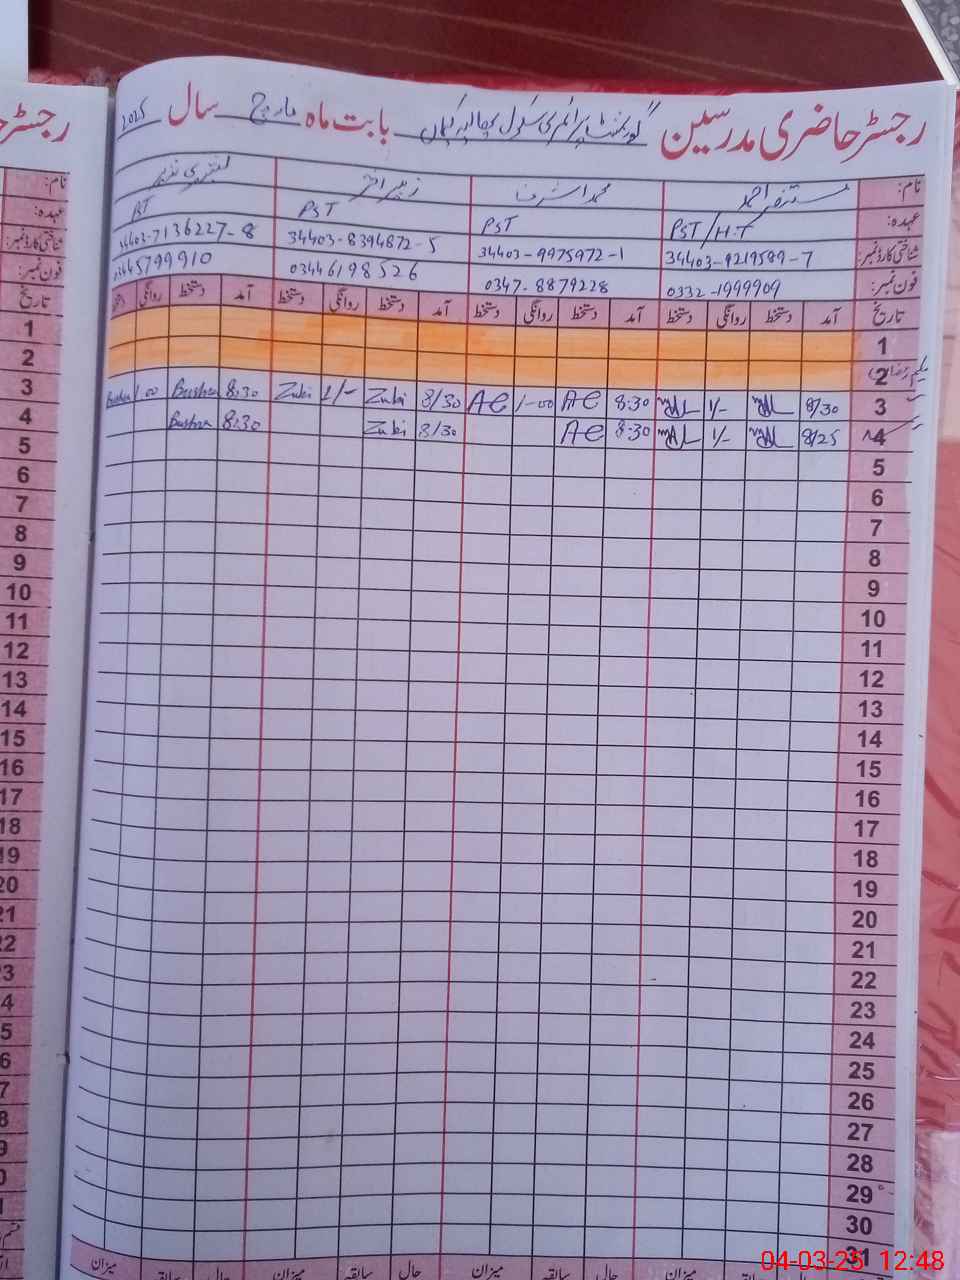 رجسٹر حاضری مدرسین گورنمنٹ پرائمری سکول بابت ماہ مارچ سال 2025
نام: محمد اشرف زبیر احمد بشریٰ نذیر
عہدہ: PST/H.T PST PST PST
شناختی کارڈ نمبر: 34403-9219589-7 34403-9975972-1 34403-8394872-5 34403-7136227-8
فون نمبر: 0332-1999909 0347-8879228 03446198526 03445799910
تاریخ آمد دستخط روانگی دستخط آمد دستخط روانگی دستخط آمد دستخط روانگی دستخط آمد دستخط روانگی دستخط
1
2
3 8/30 1/- 8:30 AE 1-00 AE 8/30 Zubi 1/- Zubi 8:30 Bushra 1:00 Bushra
4 8/25 1/- 8:30 AE 8/30 Zubi 8:30 Bushra
5
6
7
8
9
10
11
12
13
14
15
16
17
18
19
20
21
22
23
24
25
26
27
28
29
30
31
میزان حال سابقہ میزان حال سابقہ میزان حال سابقہ میزان
رجسٹر
نام:
عہدہ:
شناختی کارڈ نمبر:
فون نمبر:
تاریخ
1
2
3
4
5
6
7
8
9
10
11
12
13
14
15
16
17
18
19
20
04-03-25 12:48